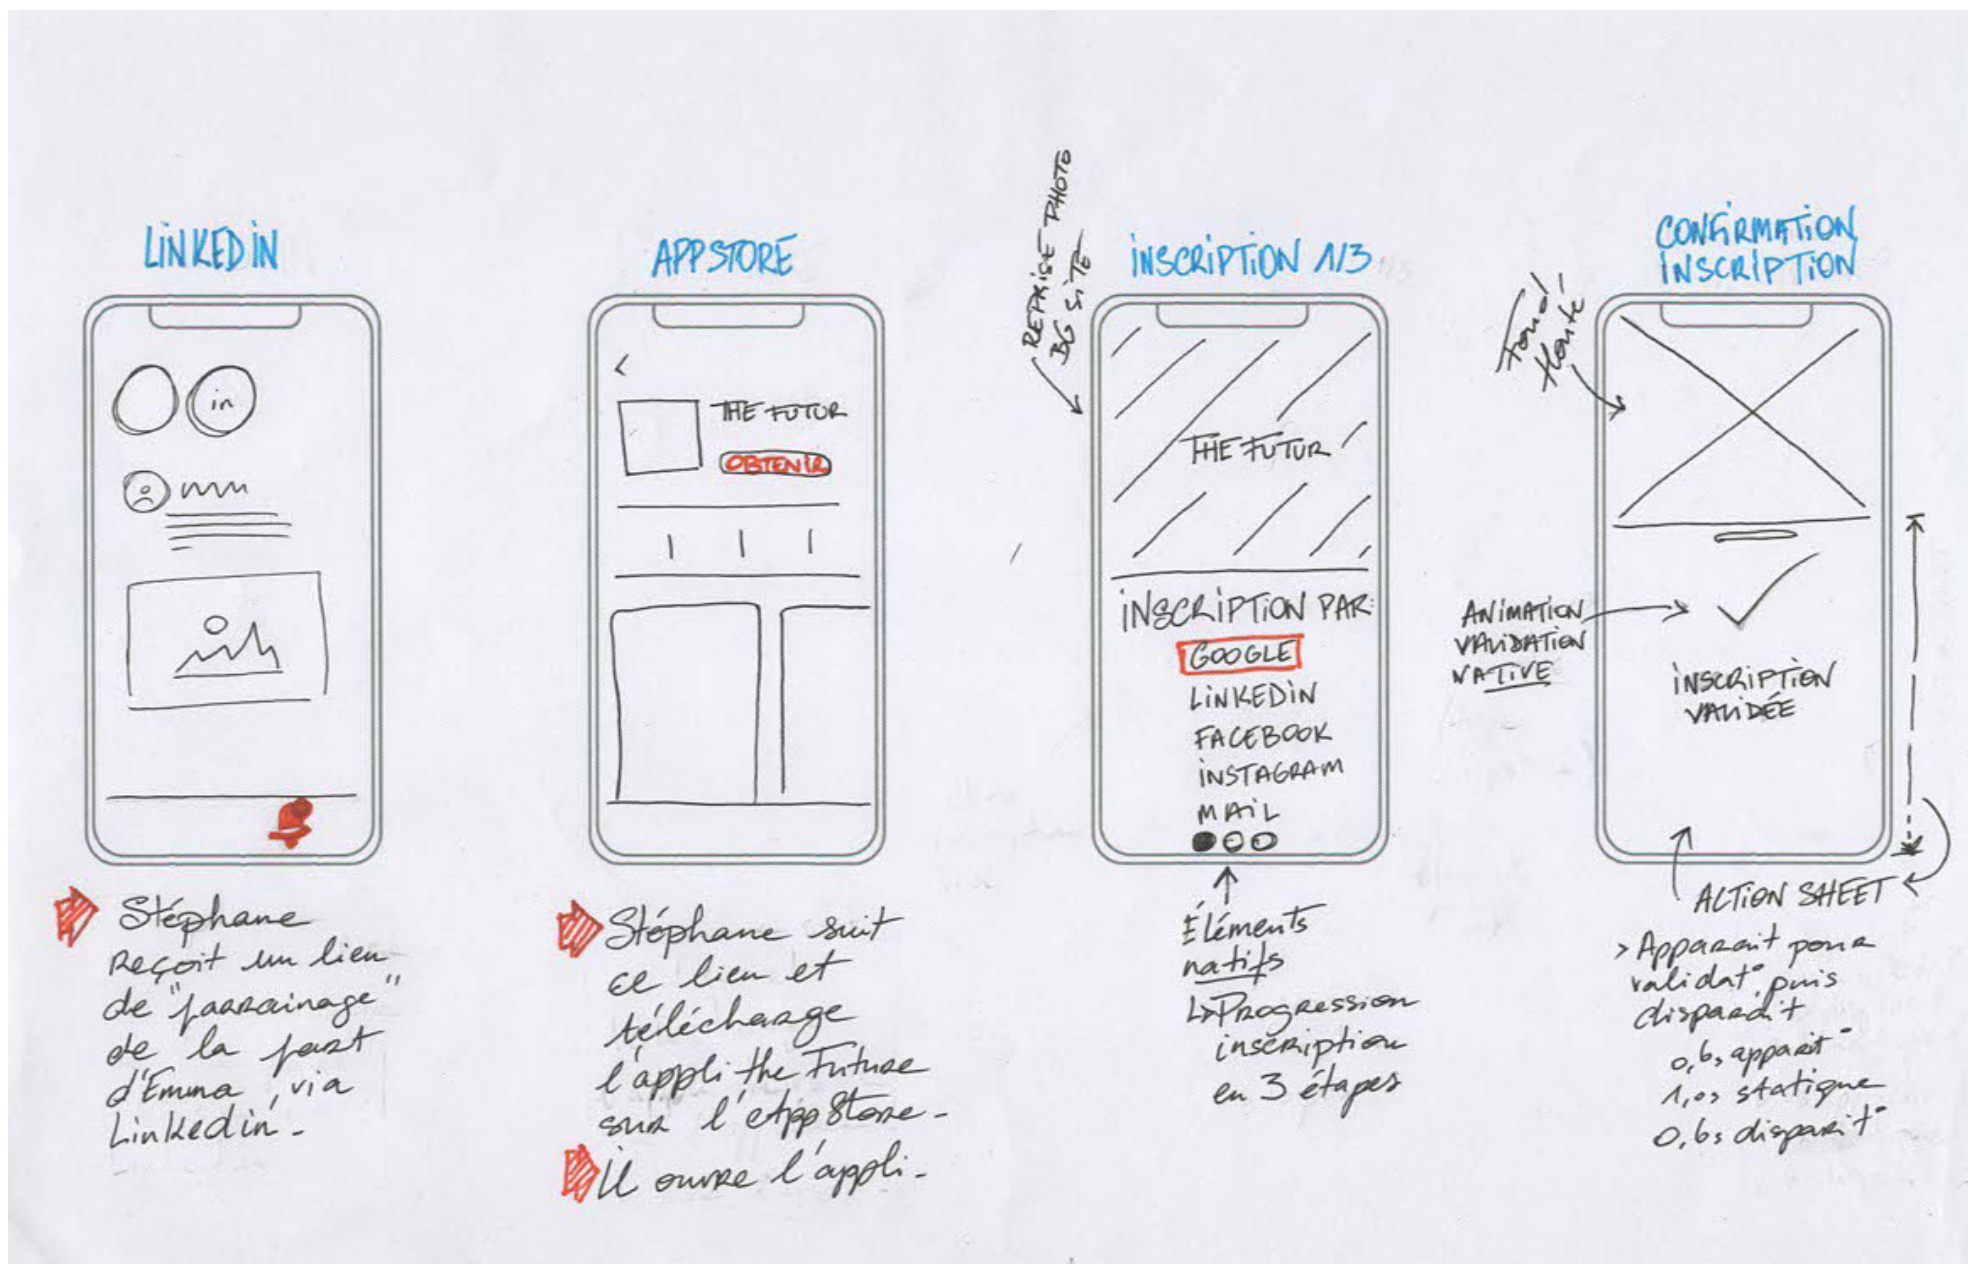 LINKEDIN
in
Stéphane
Reçoit un lien
de "parrainage"
de la part
d'Emma, via
Linkedin.
APPSTORE
<
THE FUTUR
OBTENIR
Stéphane suit
ce lien et
télécharge
l'appli the Future
sur l'AppStore.
Il ouvre l'appli.
REPRISE PHOTO
BG SITE
INSCRIPTION 1/3
THE FUTUR
INSCRIPTION PAR:
GOOGLE
LINKEDIN
FACEBOOK
INSTAGRAM
MAIL
Éléments
natifs
↳ Progression
inscription
en 3 étapes
CONFIRMATION
INSCRIPTION
Fond
ANIMATION
VALIDATION
NATIVE
INSCRIPTION
VALIDÉE
ACTION SHEET
> Apparait pour
validat° puis
disparait
0,6s apparit°
1,0s statique
0,6s disparit°